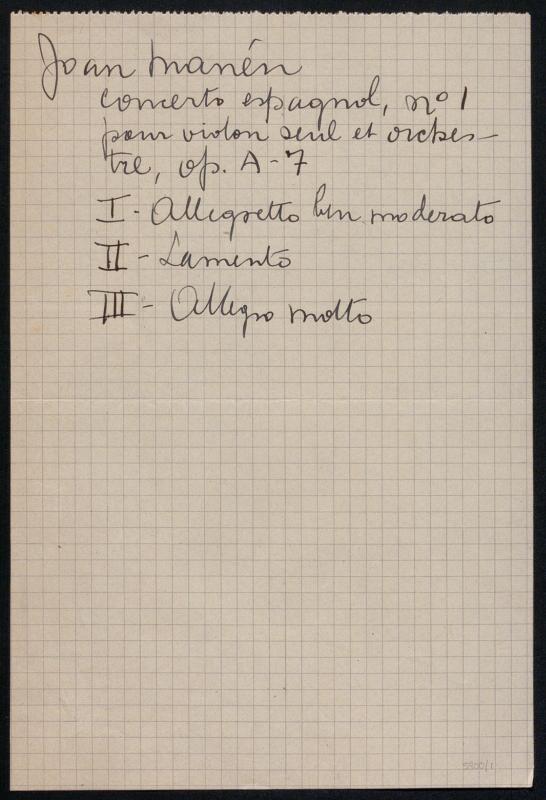 Joan Manén
Concerto espagnol, nº 1
pour violon seul et orches-
tre, op. A-7
I - Allegretto ben moderato
II - Lamento
III - Allegro molto
5800/1